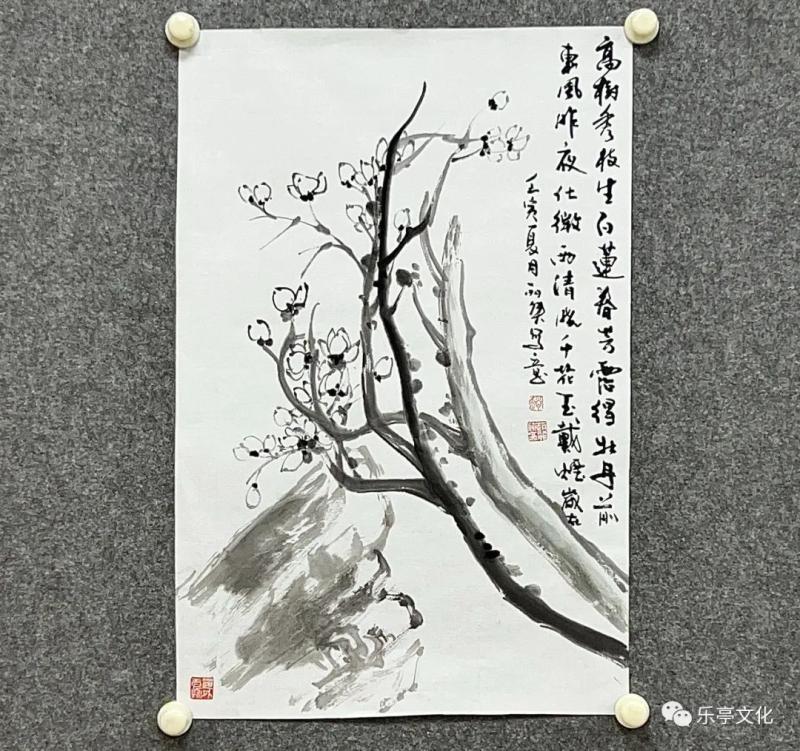 高樹秀枝生白蓮春芳得牡丹前
東風昨夜微雨清千花玉戴煙歲在
壬寅夏月寫意
乐亭文化